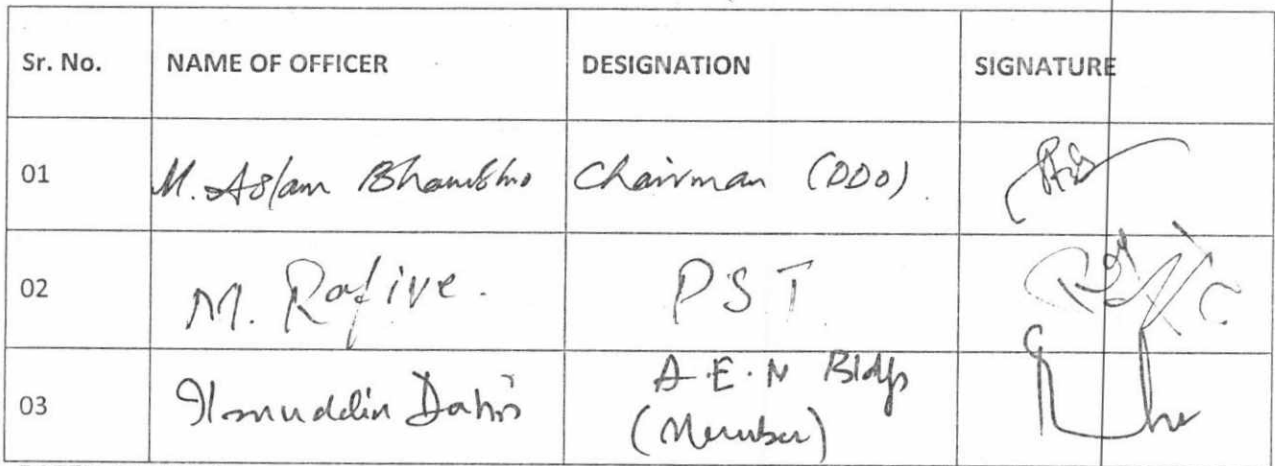 Sr. No. NAME OF OFFICER DESIGNATION SIGNATURE
01 M. Aslam Bhambhro Chairman (DDO).
02 M. Rafive. PST
03 Ilmuddin Dahri A.E.N Bldgs
(Member)